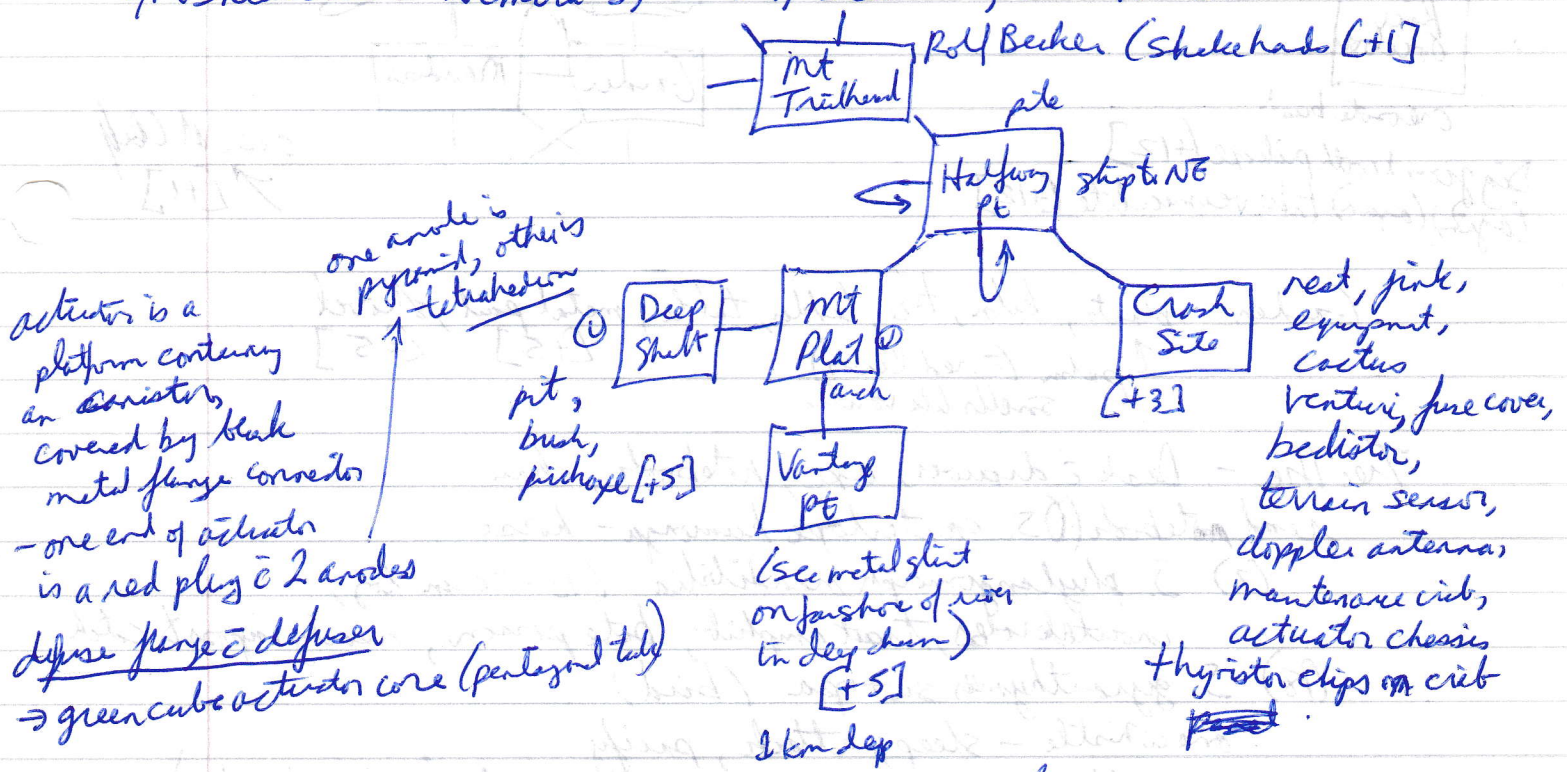 Rolf Becker (shakehands [+1]
Mt
Trailhead
pile
Halfway
pt
ship to NE
one anode is
pyramid, other is
tetrahedron
Deep
Shaft
Mt
Plat
arch
Crash
Site
[+3]
nest, junk,
equipment,
cactus
venturi, fuse cover,
bedistor,
terrain sensor,
doppler antenna,
maintenance crib,
actuator chassis
thyristor clips on crib
pit,
bush,
pickaxe [+5]
Vantage
pt
(see metal glint
on far shore of river
in deep chasm)
[+5]
1 km deep
actuator is a
platform containing
an canister,
covered by black
metal flange connector
- one end of actuator
is a red plug c̄ 2 anodes
defuse flange c̄ defuser
→ green cube actuator core (pentagonal tab)